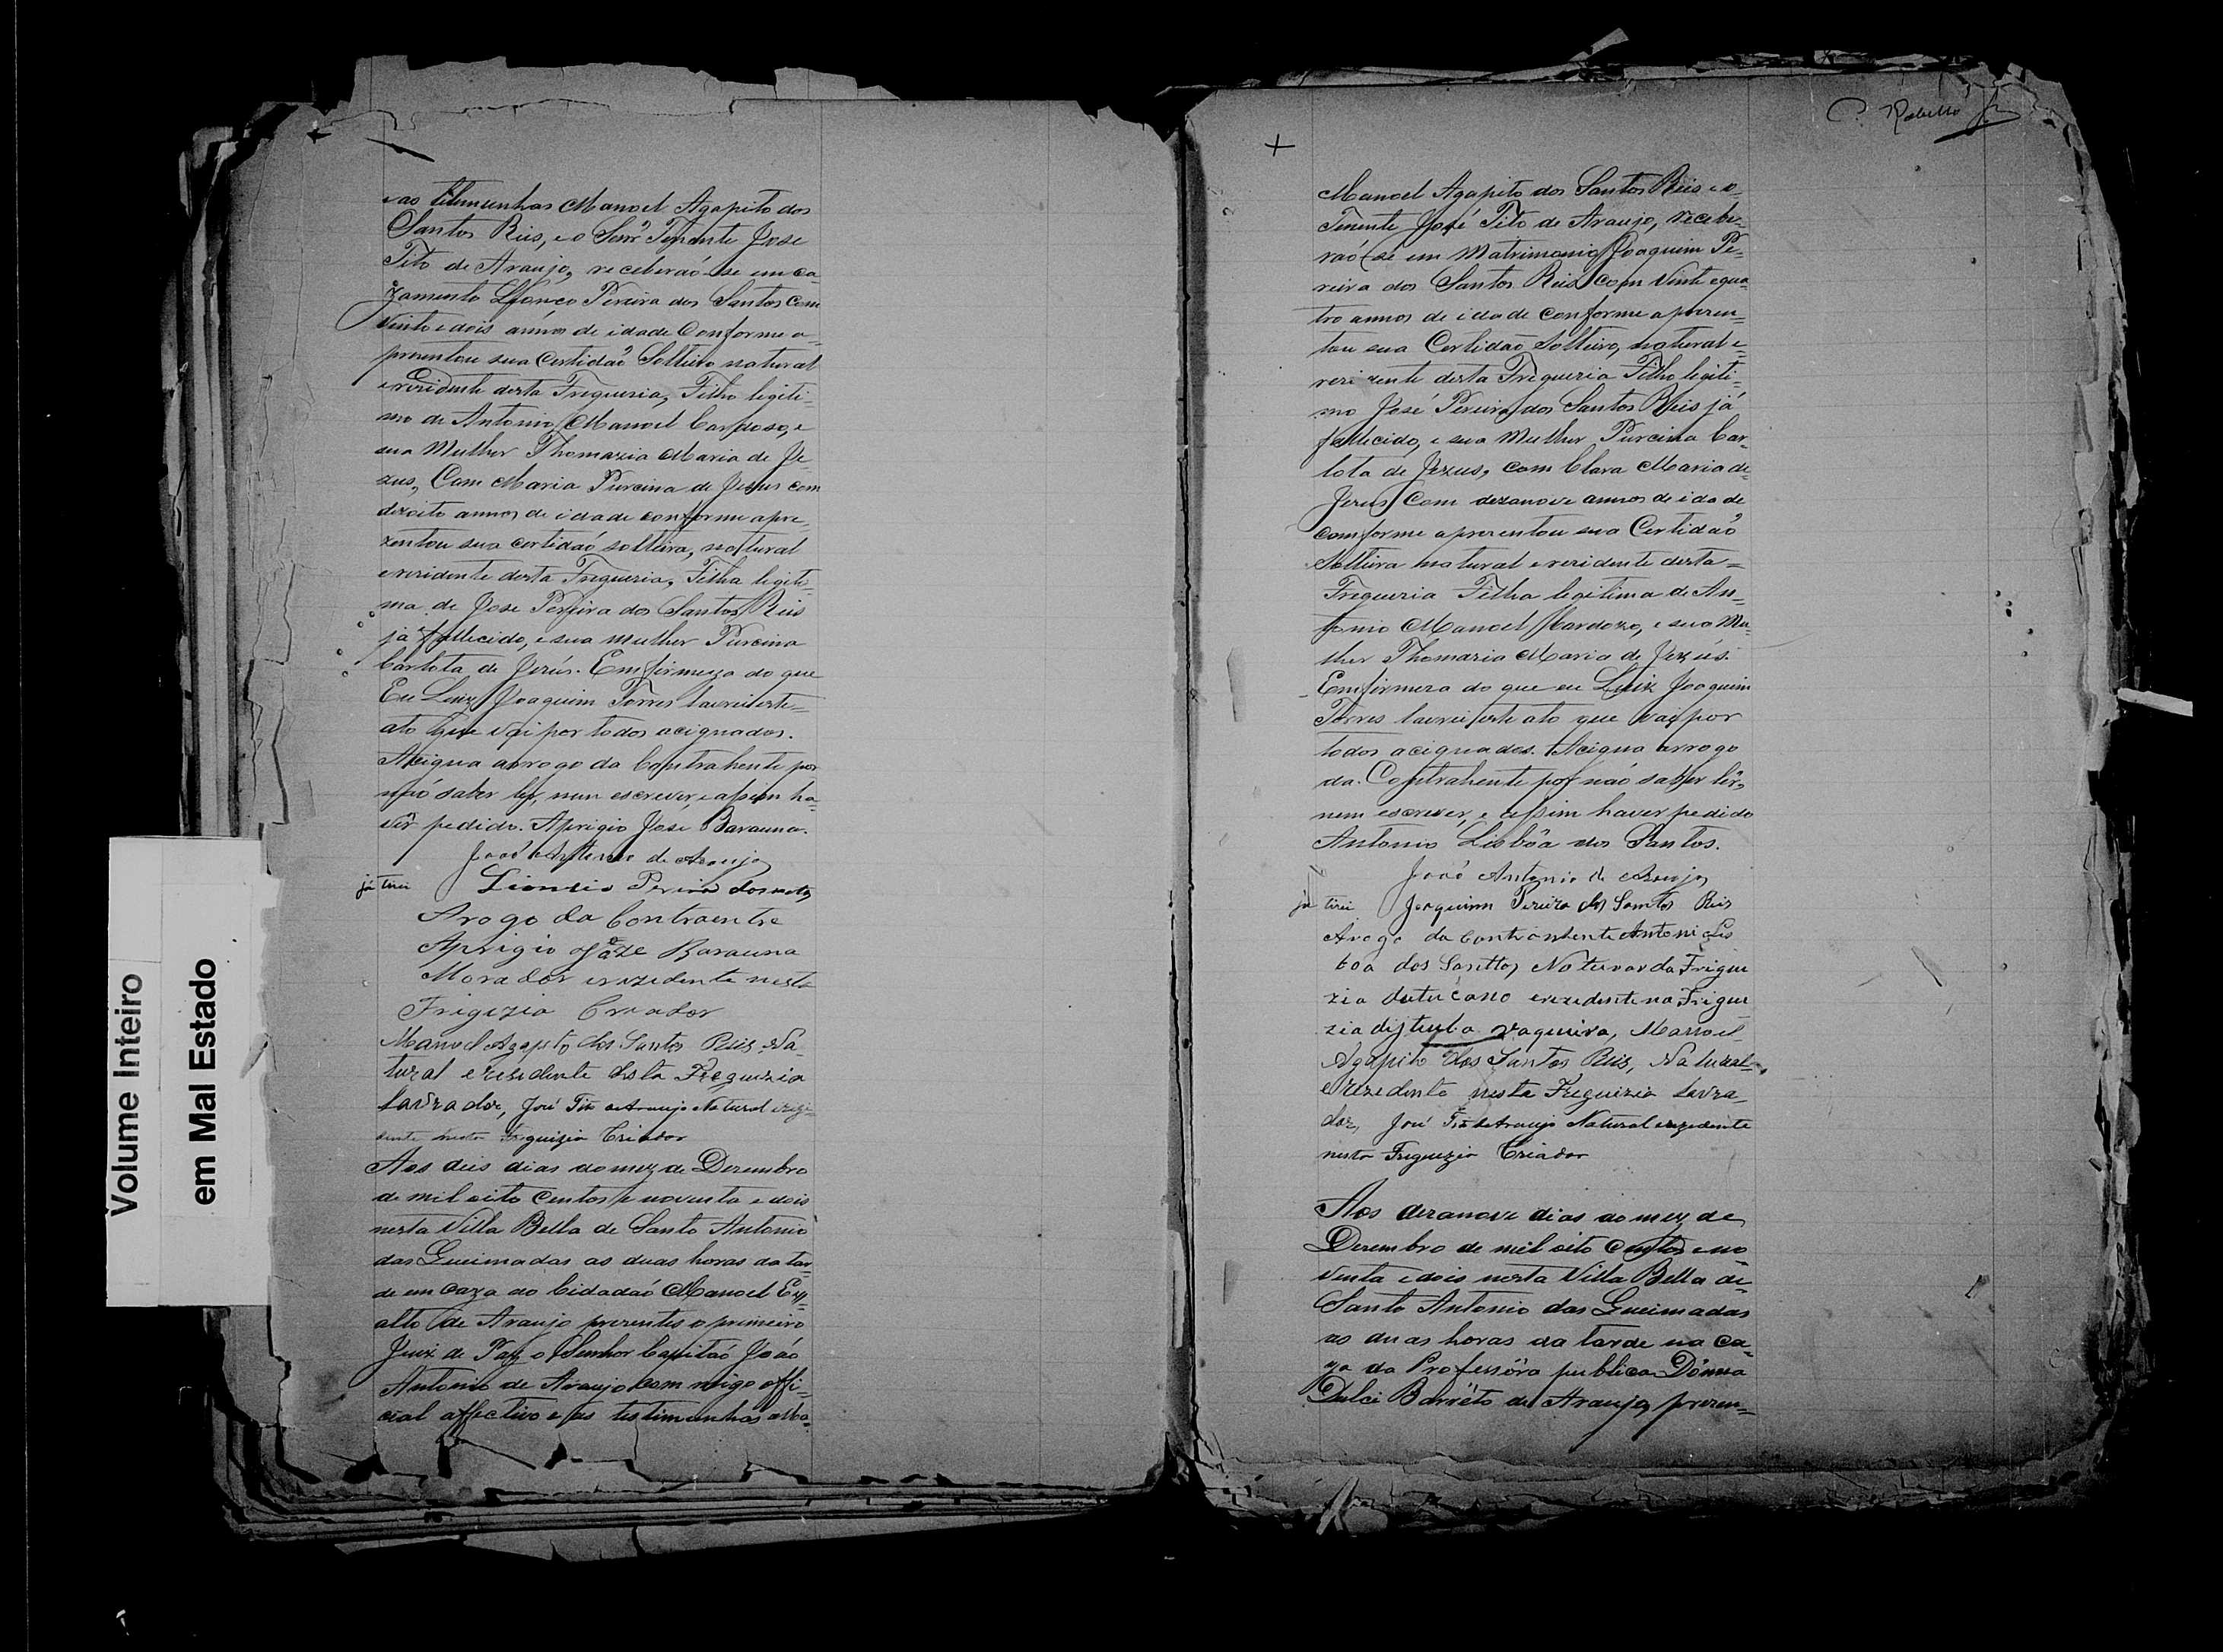 Volume Inteiro
em Mal Estado
e as testemunhas Manoel Agapito dos
Santos Reis, e o Senr Tenente Jose
Tito de Araujo, receberaó-se em ca
zamento Pereira dos Santos com
vinte e dois annos de idade Conforme a-
prezentou sua Certidaó Solteiro natural
e rezidente desta Freguezia, Filho legiti-
mo de Antonio Manoel Cardoso, e
sua Mulher Thomazia Maria de Je-
zus, Com Maria Purcina de Jesus com
dezoito annos de idade conforme apre-
zentou sua certidaó solteira, natural
e rezidente desta Freguezia, Filha legiti-
ma de Jose Pereira dos Santos Reis
já fallecido, e sua mulher Purcina
Carlota de Jesús. Em firmeza do que
Eu Luiz Joaquim Torres lavrei este=
ato que vai por todos acignados.
Acigna arrogo da Contrahente por
naó saber ler, nem escrever, e assim ha-
ver pedido. Aprigio Jose Barauna.
Joaó Antonio de Araujo
já tirei Pereira dos
Arogo da Contraente
Aprigio Jose Barauna
Morador e rezidente nesta
Frigezia Creador
Manoel Agapito dos Santos Reis, Na-
tural e residente desta Freguezia
Lavrador, José Tito de Araujo Natural e rezi-
dente nesta Freguizia Criador
Aos deis dias do mez de Dezembro
de mil oito centos e noventa e dois
nesta Villa Bella de Santo Antonio
das Queimadas as duas horas da tar
de em caza do Cidadaó Manoel Ex-
alto de Araujo prezentes o primeiro
Juiz de Paz o Senhor Capitaó João
Antonio de Araujo commigo offi-
cial affectivo e as testimunhas
C. Rabello Jr
Manoel Agapito dos Santos Reis e o
Tenente José Tito de Araujo, recebe-
raó-se em Matrimonio Joaquim Pe-
reira dos Santos Reis com vinte e qua-
tro annos de idade conforme aprezen-
tou sua Certidaó Solteiro, natural e-
rezidente desta Freguezia Filho legiti-
mo José Pereira dos Santos Reis já
fallecido, e sua Mulher Purcina Car-
lota de Jezus, com Clara Maria de
Jesus com dezanove annos de idade
comforme aprezentou sua Certidaó
Solteira natural e rezidente desta=
Freguezia Filha legitima de An-
tonio Manoel Cardozo, e sua Mu-
lher Thomazia Maria de Jezús.
Em firmeza do que eu Luiz Joaquim
Torres lavrei este ato que vai por
todos acignados. Acigna arrogo
da Contrahente por naó saber lêr,
nem escrever, e assim haver pedido
Antonio Lisbôa dos Santos.
Joaó Antonio de Araujo
já tirei Joaquim Pereira dos Santos Reis
Arogo da Contraente Antonio Lis
boa dos Santos, Natural da Frigue
zia do tucano e rezidente na Frigue
zia desta vaqueiro, Manoel
Agapito dos Santos Reis, Natural
e rezidente nesta Freguizia Lavra-
dor, José Tito de Araujo Natural e rezidente
nesta Freguizia Criador
Aos dezanove dias do mez de
Dezembro de mil oito centos e no
venta e dois nesta Villa Bella de
Santo Antonio das Queimadas
as duas horas da tarde na ca-
za da Professôra publica Dônna
Dulci Barrêto de Araujo, prezen-